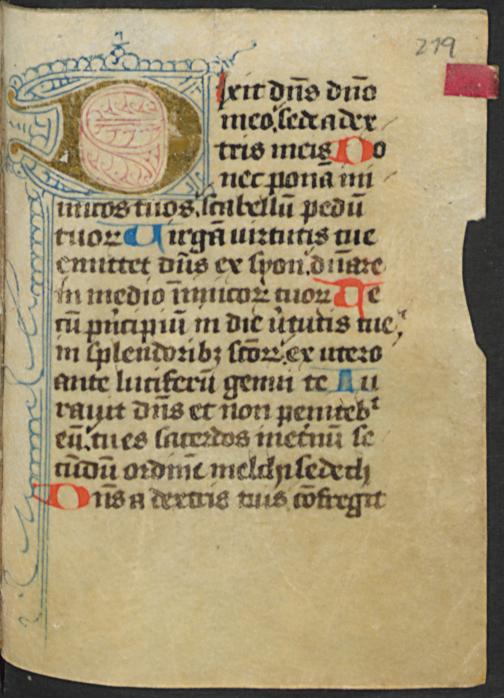 219
Dixit dn̄s dn̄o
meo, sede a dex
tris meis Do
nec ponā ini
micos tuos, scabellū pedū
tuoꝝ Uirgā uirtutis tue
emittet dn̄s ex syon, dn̄are
in medio inimicoꝝ tuoꝝ Te
cū pn̄cipiū in die ūtutis tue
in splendoribꝫ scōꝝ, ex utero
ante luciferū genui te Iu
rauit dn̄s et non peniteb͛
eū, tu es sacerdos in etnū se
cūdū ordinē melchisedech
Dn̄s a dextris tuis cōfregit